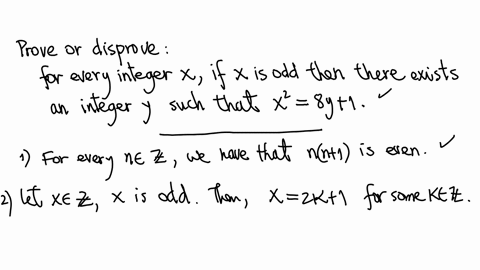 Prove or disprove:
for every integer x, if x is odd then there exists
an integer y such that x² = 8y+1. ✓
1) For every n∈ℤ, we have that n(n+1) is even. ✓
2) Let x∈ℤ, x is odd. Then, x=2k+1 for some k∈ℤ.